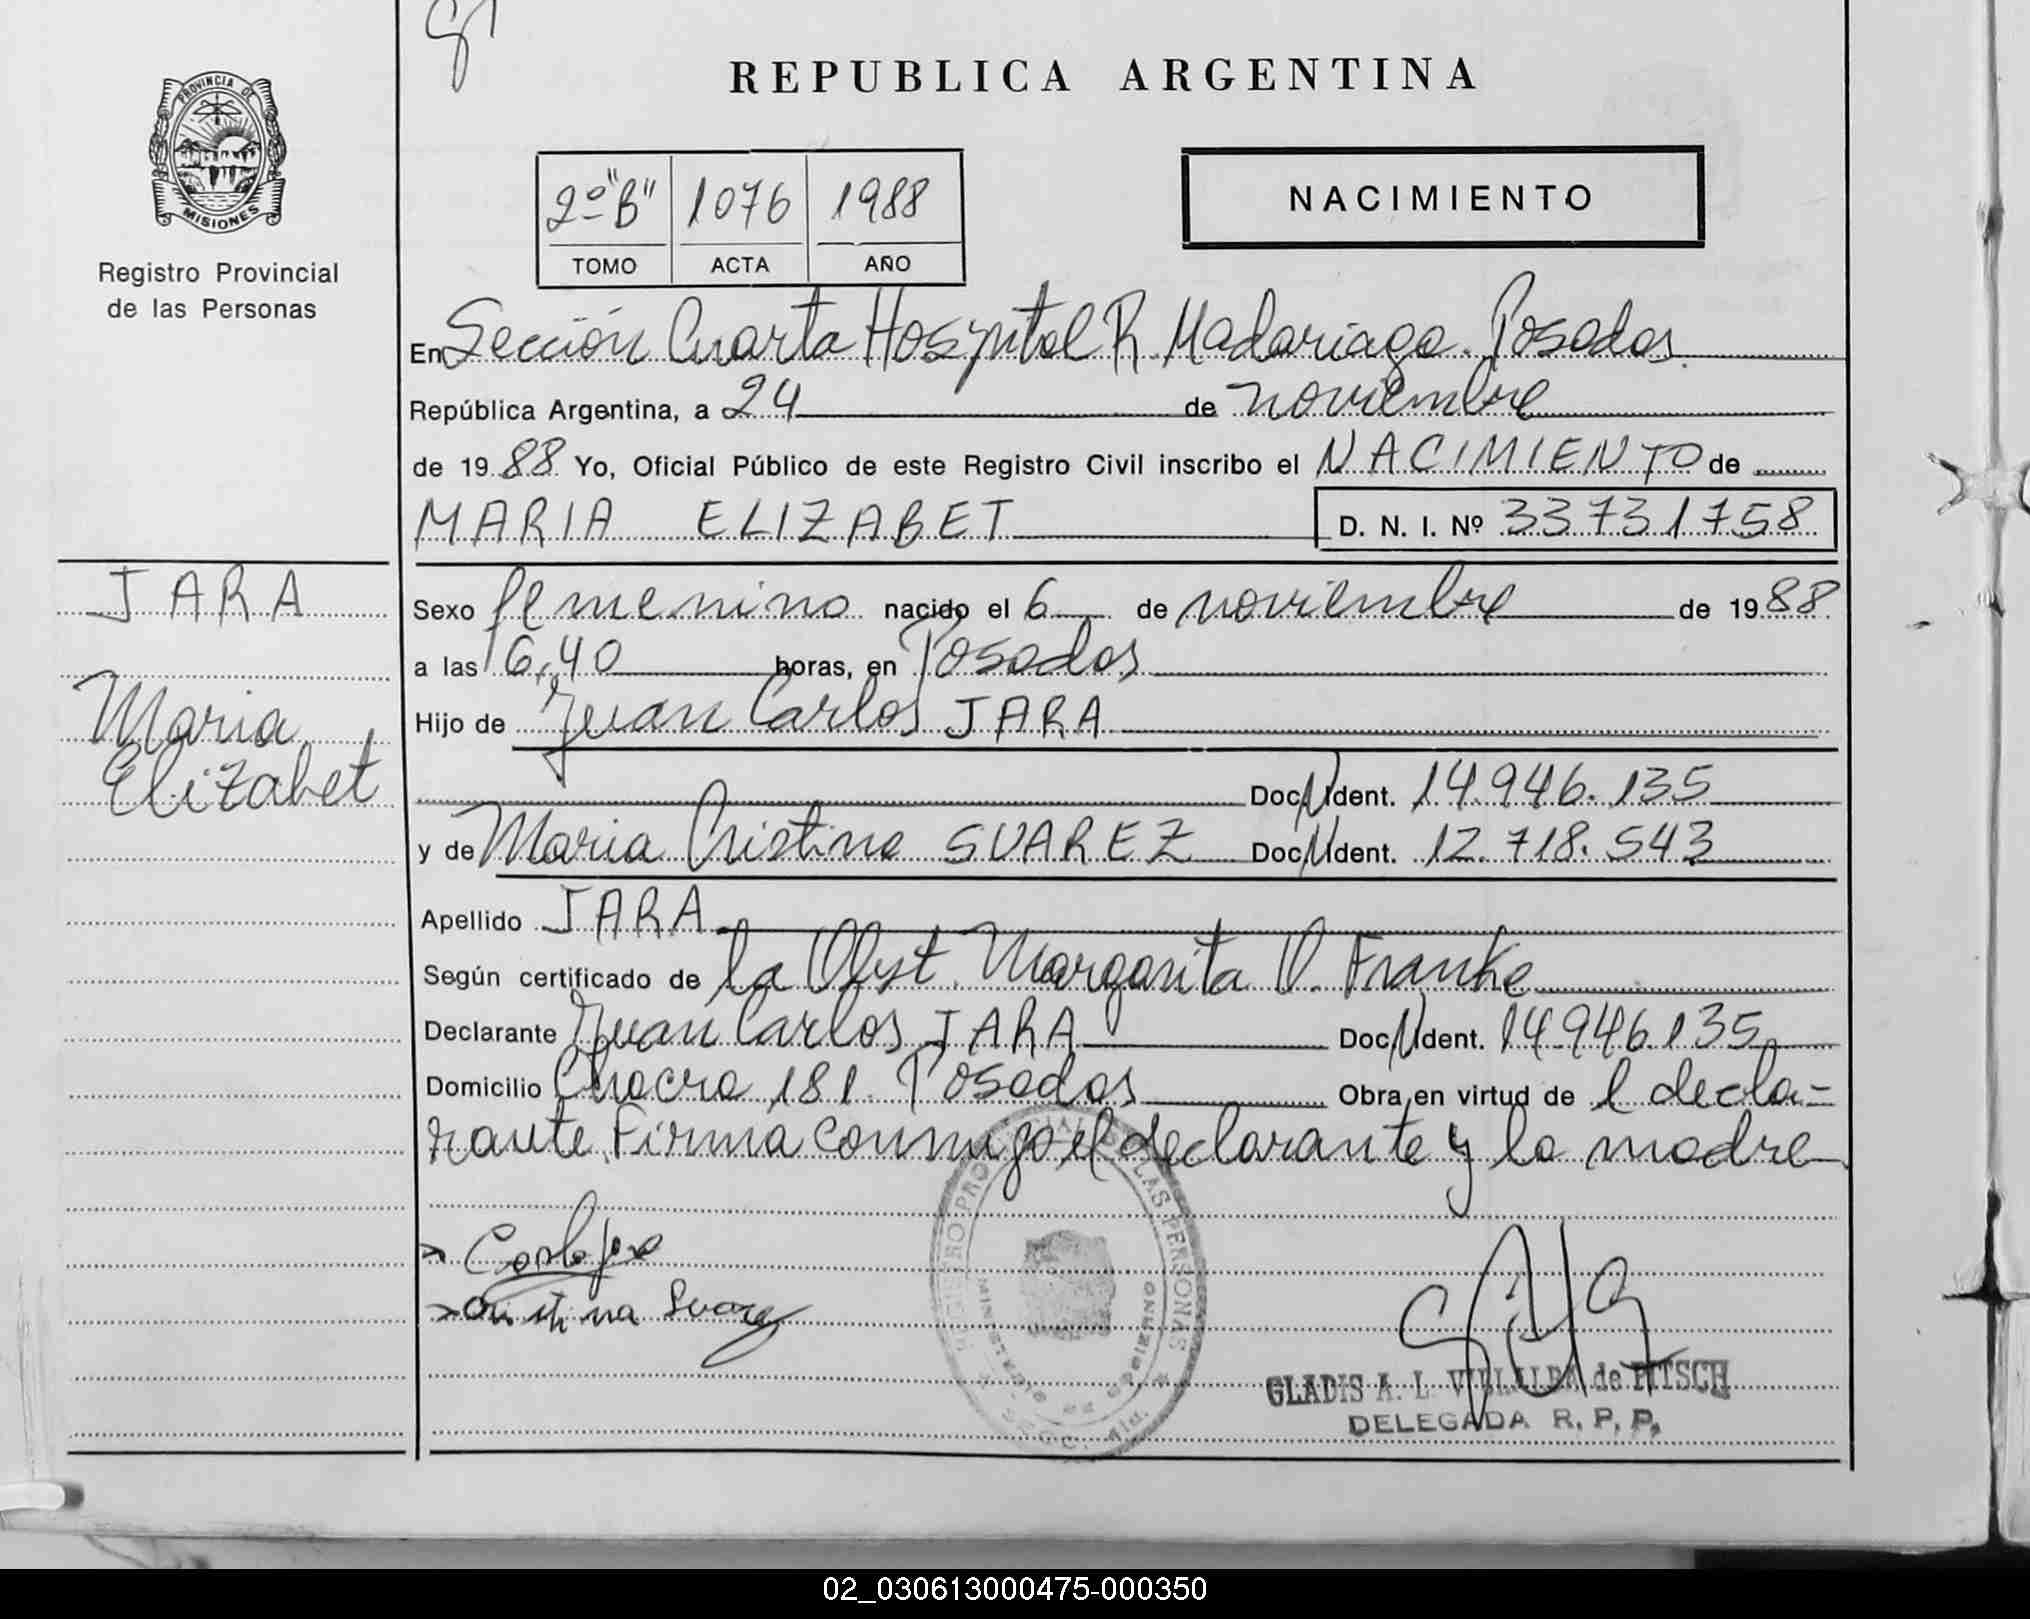 REPUBLICA ARGENTINA
PROVINCIA DE
MISIONES
Registro Provincial
de las Personas
2º "B" 1076 1988
TOMO ACTA AÑO
NACIMIENTO
En Sección Cuarta Hospital R. Madariaga. Posadas
República Argentina, a 24 de noviembre
de 1988 Yo, Oficial Público de este Registro Civil inscribo el NACIMIENTO de
MARIA ELIZABET D. N. I. Nº 33731758
JARA
Maria
Elizabet
Sexo femenino nacido el 6 de noviembre de 1988
a las 16,40 horas, en Posadas
Hijo de Juan Carlos JARA
Doc. Ident. 14.946.135
y de Maria Cristina SUAREZ Doc. Ident. 12.718.543
Apellido JARA
Según certificado de la Obst. Margarita V. Franke
Declarante Juan Carlos JARA Doc. Ident. 14.946.135
Domicilio Chacra 181. Posadas Obra en virtud de l decla=
rante. Firma conmigo el declarante y la madre
Cristina Suarez
REGISTRO PROVINCIAL DE LAS PERSONAS
GLADIS A. L. VILLALBA de PITSCH
DELEGADA R. P. P.
02_030613000475-000350